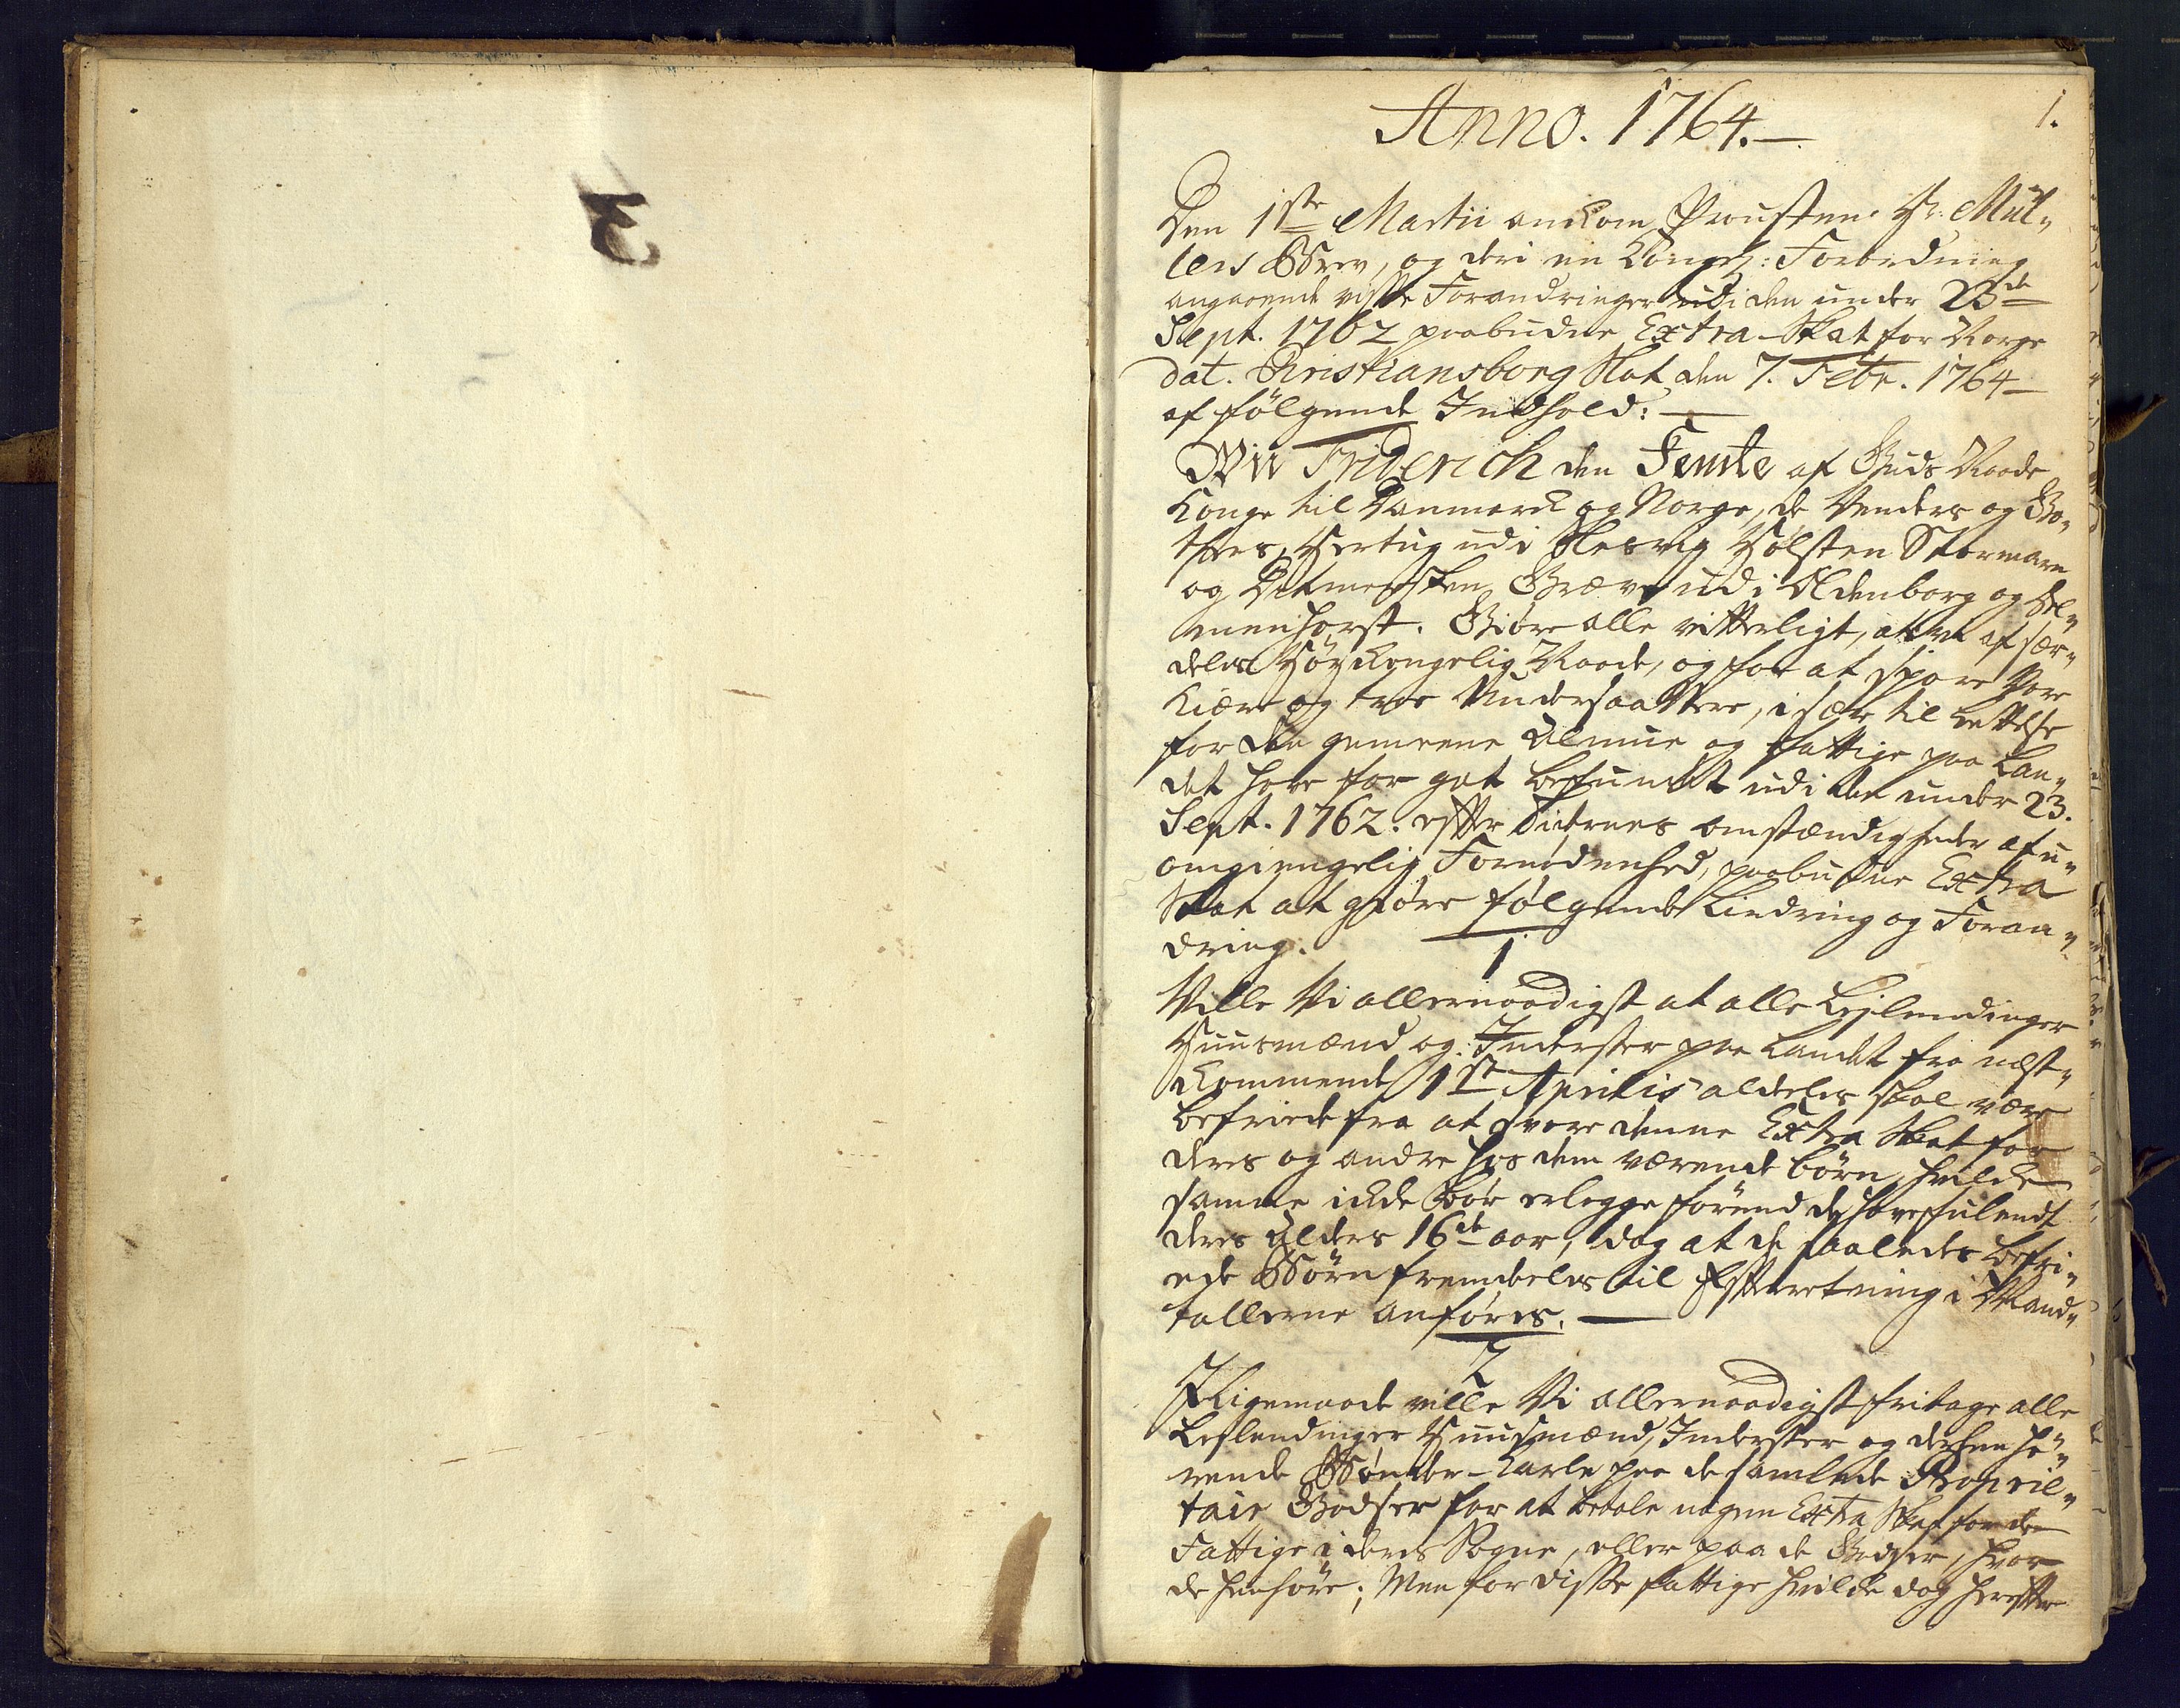 3
1.
Anno. 1764.—
Den 1ste Martii ankom Prousten Hr. Mül-
lers Brev, og deri en Kongl: Forordning
angaaende visse Forandringer udi den under 23de
Sept. 1762 paabudne Extra-Skat for Norge
dat. Christiansborg Slot den 7. Febr. 1764 —
af følgende Indhold: —
Wii Friderich den Femte af Guds Naade
Konge til Danmark og Norge, de Venders og Go-
thers, Hertug udi Slesvig Holsten Stormarn
og Ditmersken, Greve udi Oldenborg og Del-
menhorst. Giøre alle vitterligt, at vi af sær-
deles Høy Kongelig Naade, og for at spare Vore
kiære og troe Undersaattere, i sær til Lettelse
for den gemeene Almue og fattige paa Lan-
det have for got befundet udi den under 23.
Sept. 1762. efter Tidernes omstændigheder af u-
omgiengelig Fornødenhed, paabudne Extra
Skat at giøre følgende Lindring og Foran-
dring.
1
Ville Vi allernaadigst at alle Leylendinger
Huusmænd og Inderster paa Landet fra nest-
kommende 1ste Aprilis aldeles skal være
befriede fra at svare denne Extra Skat for
deres og andre hos dem værende børn, hvilke
samme icke bør erlegge førend de have fulendt
deres Alders 16de aar, dog at de saaledes befri-
ede Børn fremdeles til Efterretning i Mand-
tallerne anføres. —
2
Ligemaade ville Vi allernaadigst fritage alle
Leylendinger Huusmænd, Inderster og derhen hø-
rende Bønder-Karle paa de samlede Proprie-
tair Godser for at betale nogen Extra Skat for de
Fattige i deres Sogne, eller paa de Godser, hvor
de henhøre; Men for disse fattige hvilke dog herefter